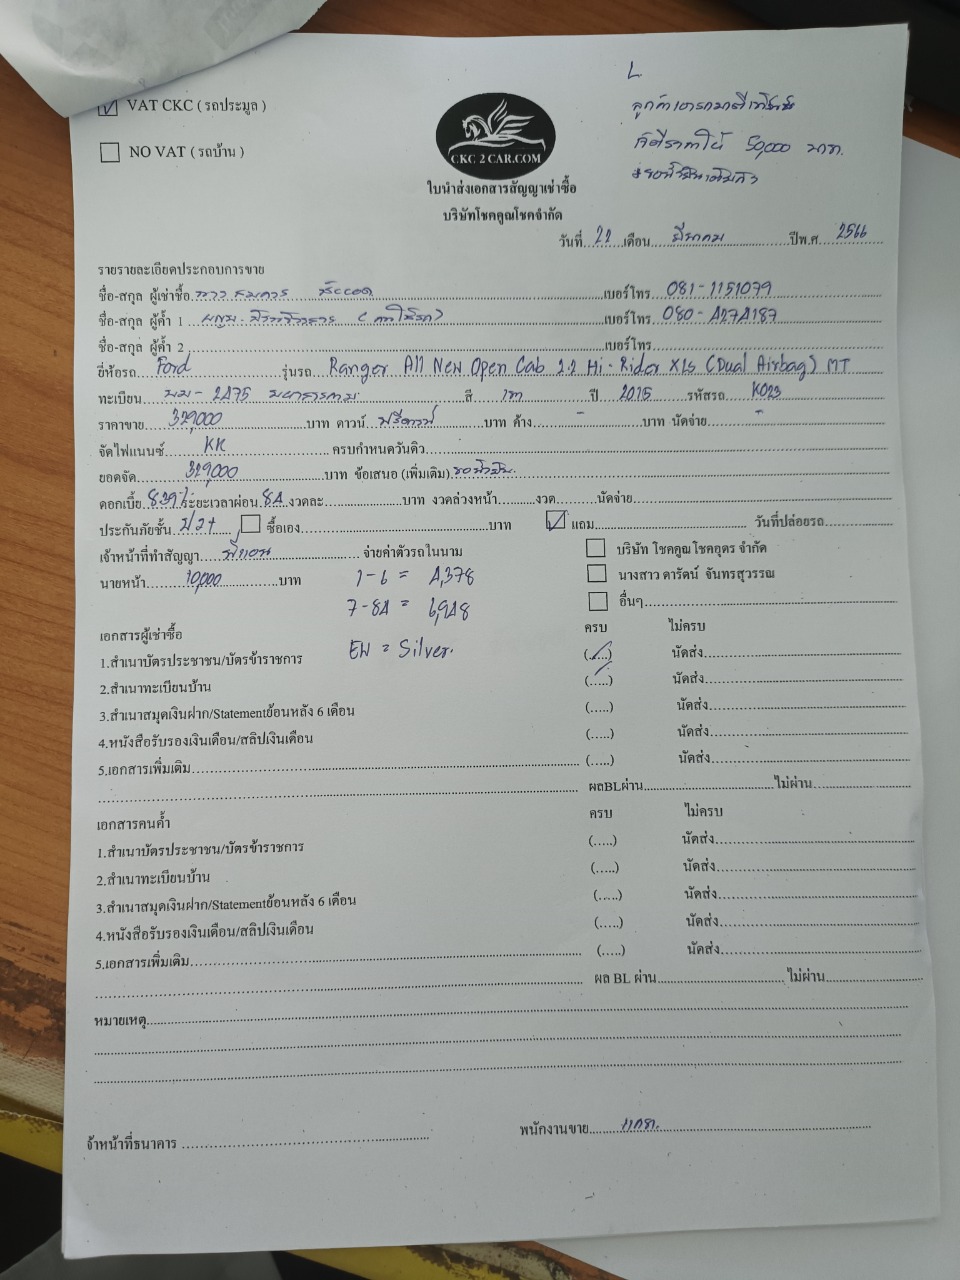 VAT CKC ( รถประมูล )
NO VAT ( รถบ้าน )
CKC 2 CAR.COM
50,000 บาท.
ใบนำส่งเอกสารสัญญาเช่าซื้อ
บริษัทโชคคูณโชคจำกัด
วันที่ 22 เดือน มีนาคม ปีพ.ศ. 2566
รายรายละเอียดประกอบการขาย
ชื่อ-สกุล ผู้เช่าซื้อ เบอร์โทร 081-1151079
ชื่อ-สกุล ผู้ค้ำ 1 เบอร์โทร 080-4274187
ชื่อ-สกุล ผู้ค้ำ 2 เบอร์โทร
ยี่ห้อรถ Ford รุ่นรถ Ranger All New Open Cab 2.2 Hi-Rider XLS (Dual Airbag) MT
ทะเบียน 2475 มหาสารคาม สี เทา ปี 2015 รหัสรถ K023
ราคาขาย 329,000 บาท ดาวน์ ฟรีดาวน์ บาท ค้าง - บาท นัดจ่าย -
จัดไฟแนนซ์ KK ครบกำหนดวันดิว
ยอดจัด 329,000 บาท ข้อเสนอ (เพิ่มเติม)
ดอกเบี้ย ระยะเวลาผ่อน 84 งวดละ บาท งวดล่วงหน้า งวด นัดจ่าย
ประกันภัยชั้น ป2+ ซื้อเอง บาท แถม วันที่ปล่อยรถ
เจ้าหน้าที่ทำสัญญา จ่ายค่าตัวรถในนาม บริษัท โชคคูณโชคอุดร จำกัด
นายหน้า 10,000 บาท 1-6 = 4,378 นางสาว ดารัตน์ จันทรสุวรรณ
7-84 = 6,948 อื่นๆ
เอกสารผู้เช่าซื้อ EW = Silver. ครบ ไม่ครบ
1.สำเนาบัตรประชาชน/บัตรข้าราชการ (.....) นัดส่ง
2.สำเนาทะเบียนบ้าน (.....) นัดส่ง
3.สำเนาสมุดเงินฝาก/Statementย้อนหลัง 6 เดือน (.....) นัดส่ง
4.หนังสือรับรองเงินเดือน/สลิปเงินเดือน (.....) นัดส่ง
5.เอกสารเพิ่มเติม (.....) นัดส่ง
ผลBLผ่าน ไม่ผ่าน
เอกสารคนค้ำ ครบ ไม่ครบ
1.สำเนาบัตรประชาชน/บัตรข้าราชการ (.....) นัดส่ง
2.สำเนาทะเบียนบ้าน (.....) นัดส่ง
3.สำเนาสมุดเงินฝาก/Statementย้อนหลัง 6 เดือน (.....) นัดส่ง
4.หนังสือรับรองเงินเดือน/สลิปเงินเดือน (.....) นัดส่ง
5.เอกสารเพิ่มเติม (.....) นัดส่ง
ผล BL ผ่าน ไม่ผ่าน
หมายเหตุ
จ้าหน้าที่ธนาคาร พนักงานขาย